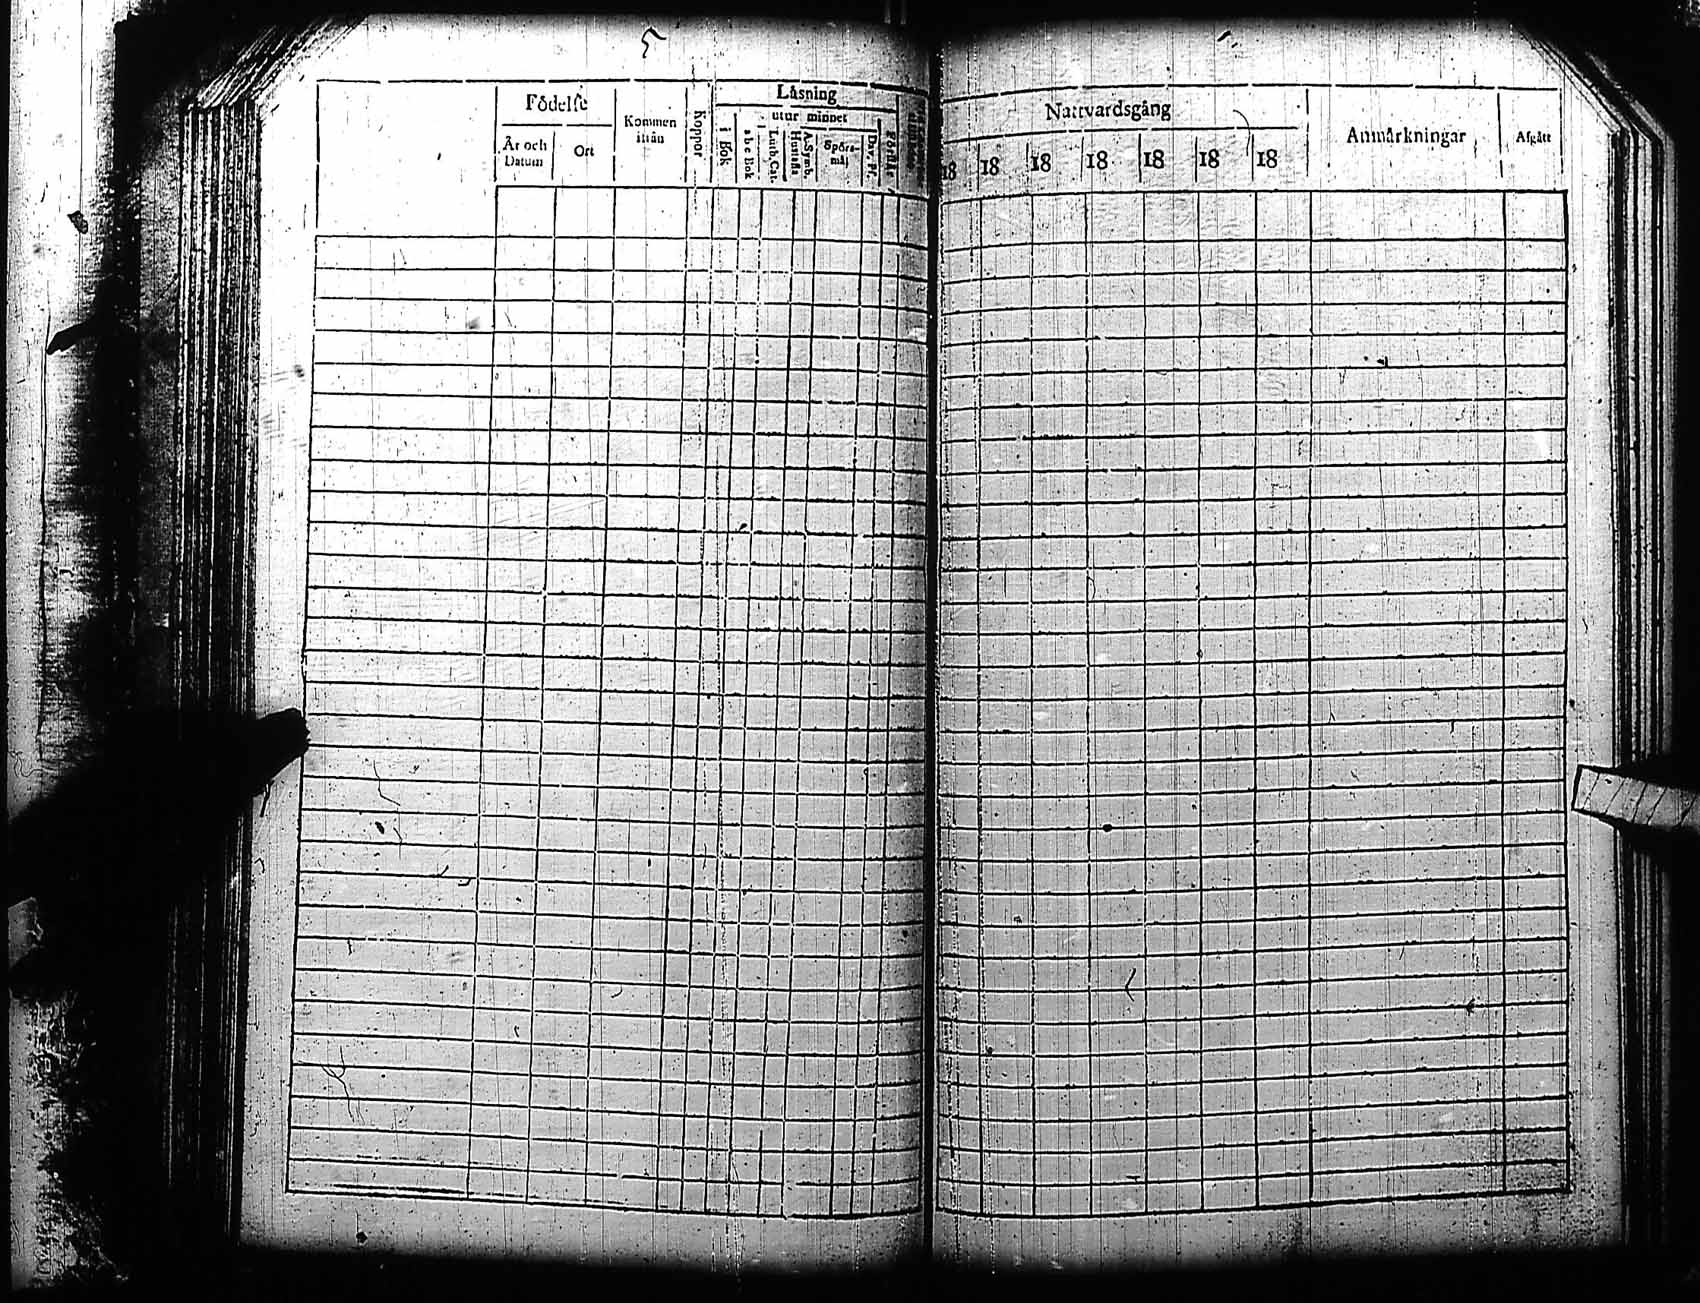 5
Födelse
År och Datum
Ort
Kommen ifrån
Koppor
Läsning
i Bok
utur minnet
a b c Bok
Luth. Cat.
A. Symb. Hustafla
Spörs-mål
Dav. Ps.
Förstår
Nattvardsgång
18 18 18 18 18 18 18
Anmärkningar
Afgått